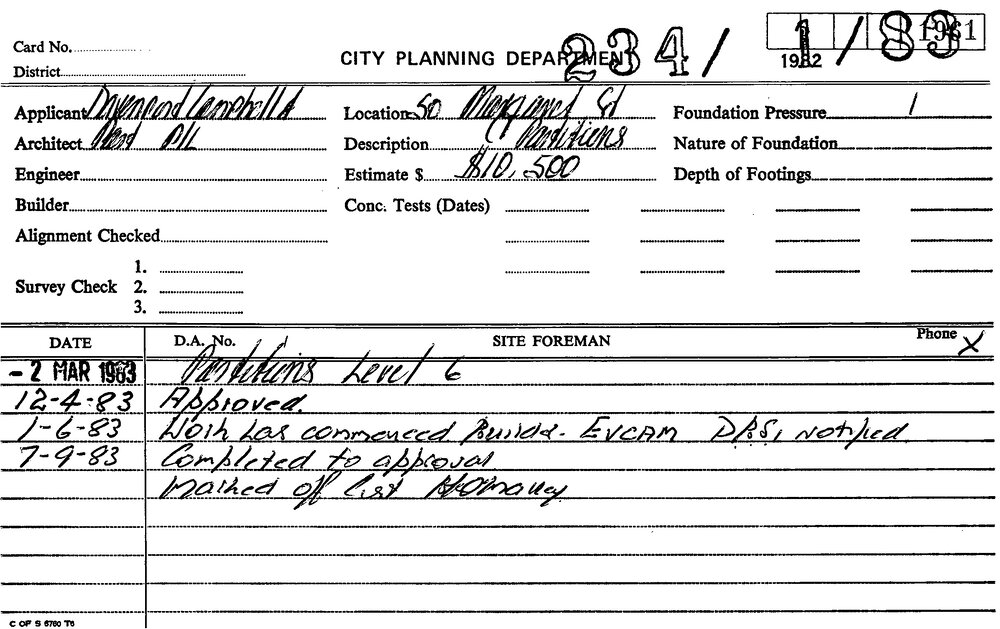 Card No.
District
CITY PLANNING DEPARTMENT
234/1/83
1981
1982
Applicant Davenport Campbell
Location 50 Margaret St
Foundation Pressure
Architect P/L
Description Partitions
Nature of Foundation
Engineer
Estimate $ $10,500
Depth of Footings
Builder
Conc. Tests (Dates)
Alignment Checked
Survey Check 1.
2.
3.
DATE D.A. No. SITE FOREMAN Phone X
- 2 MAR 1983 Partitions Level 6
12-4-83 Approved.
1-6-83 Work has commenced Builder - EVCAM D.B.S, notified
7-9-83 Completed to approval
Marked off list
C OF S 6760 T6